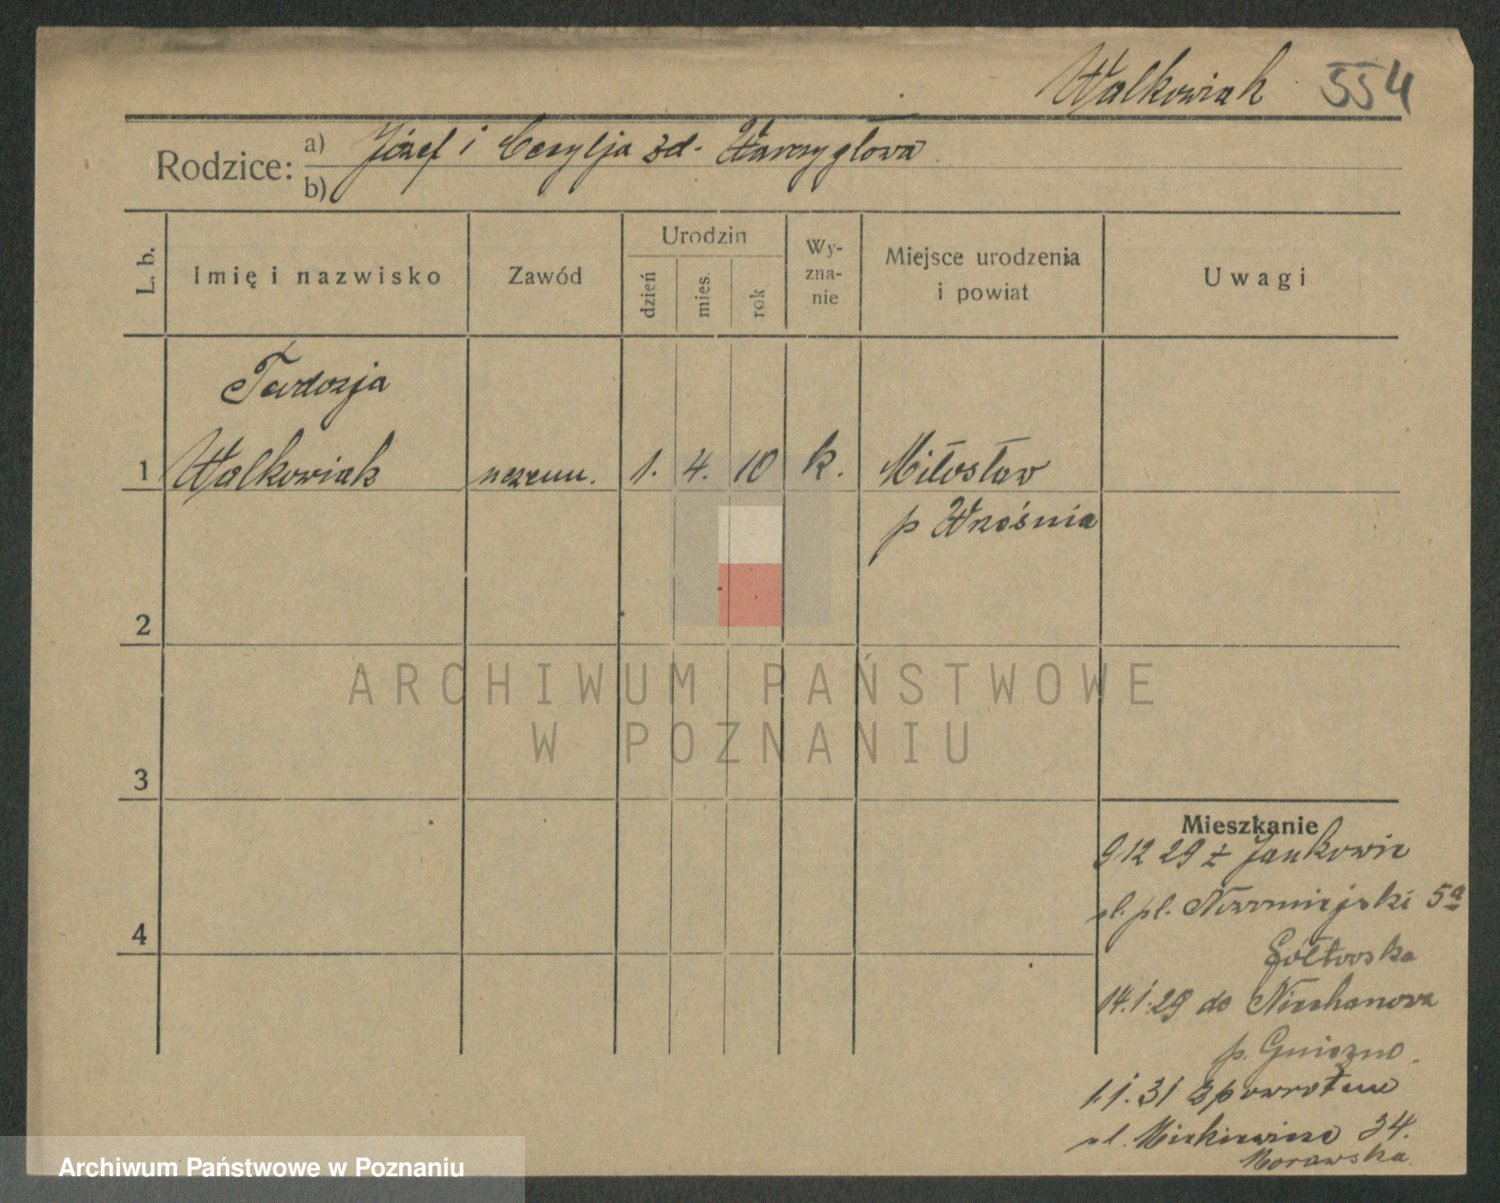 Walkowiak 554
Rodzice: a) Józef i Cecylja zd. Warzygłowa
b)
L. b. Imię i nazwisko Zawód Urodzin dzień mies. rok Wy-zna-nie Miejsce urodzenia i powiat Uwagi
Teodozja
1 Walkowiak uczenn. 1. 4. 10 k. Miłosław
p Września
2
ARCHIWUM PAŃSTWOWE
W POZNANIU
3
Mieszkanie
9 12 29 z Jankowic
ul. pl. Nowomiejski 5a
4
14.1.29 do Niechanowa
p. Gniezno.
1.1.31 z powrotem
ul. Mickiewicza 34.
Morawska
Archiwum Państwowe w Poznaniu